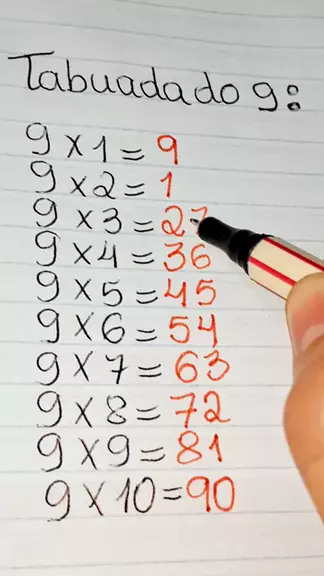 Tabuada do 9:
9 x 1 = 9
9 x 2 = 1
9 x 3 = 27
9 x 4 = 36
9 x 5 = 45
9 x 6 = 54
9 x 7 = 63
9 x 8 = 72
9 x 9 = 81
9 x 10 = 90